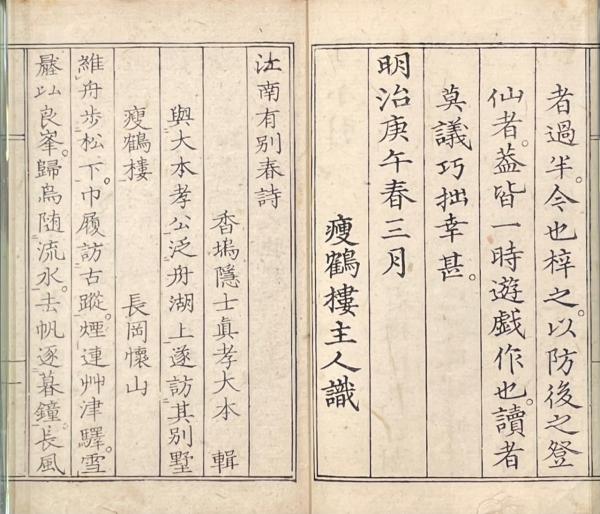 者過半。今也梓之。以防後之登
仙者。蓋皆一時遊戯作也。讀者
莫議巧拙幸甚。
明治庚午春三月
瘦鶴樓主人識
江南有別春詩
香塢隱士眞孝大本 輯
與大本孝公泛舟湖上遂訪其別墅
瘦鶴樓 長岡懷山
維舟步松下。巾履訪古蹤。煙連艸津驛。雪
壓山良峯。歸鳥随流水。去帆逐暮鐘。長風